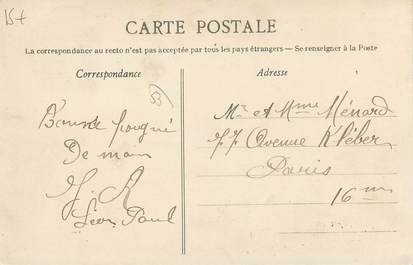 15+
CARTE POSTALE
La correspondance au recto n'est pas acceptée par tous les pays étrangers — Se renseigner à la Poste
Correspondance
Adresse
53
Bonne poigné
De main
Léon Paul
Mr et Mme Ménard
77 Avenue Kléber
Paris
16me